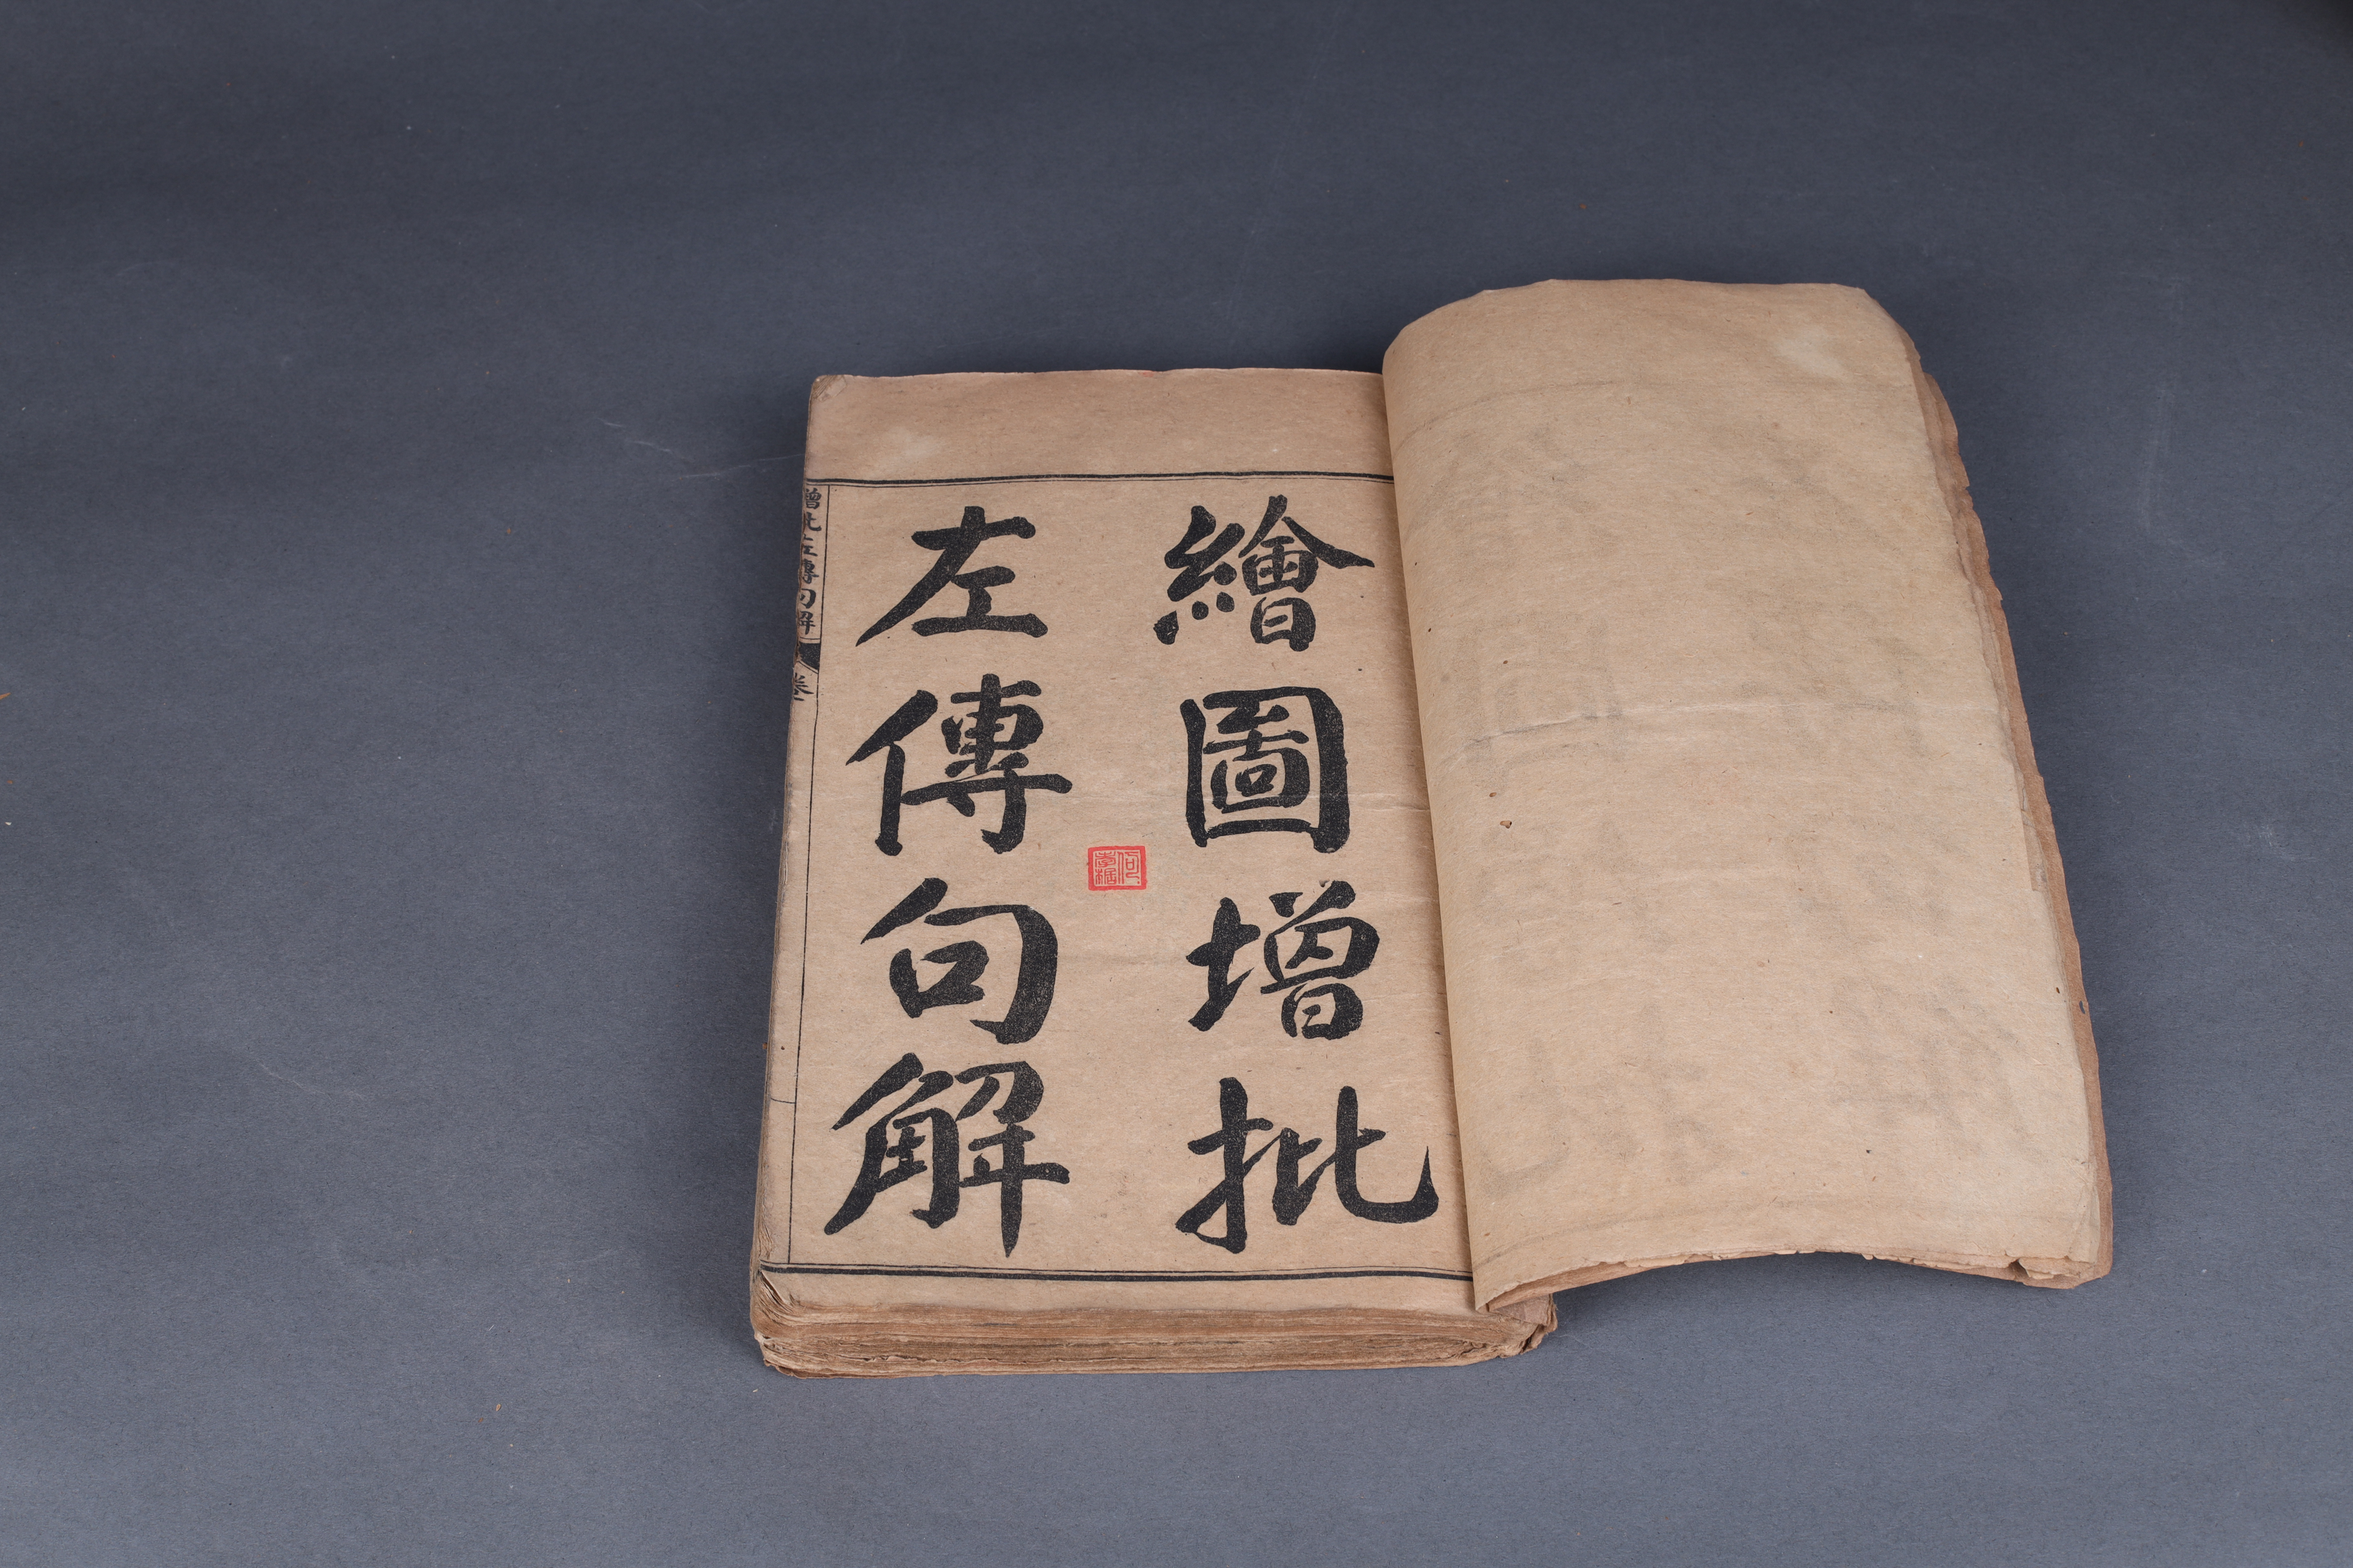 繪圖增批
左傳句解
增批左傳句解
卷一